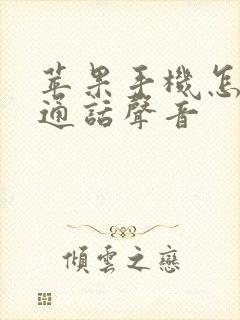 苹果手機怎
通話聲音
傾雲之戀